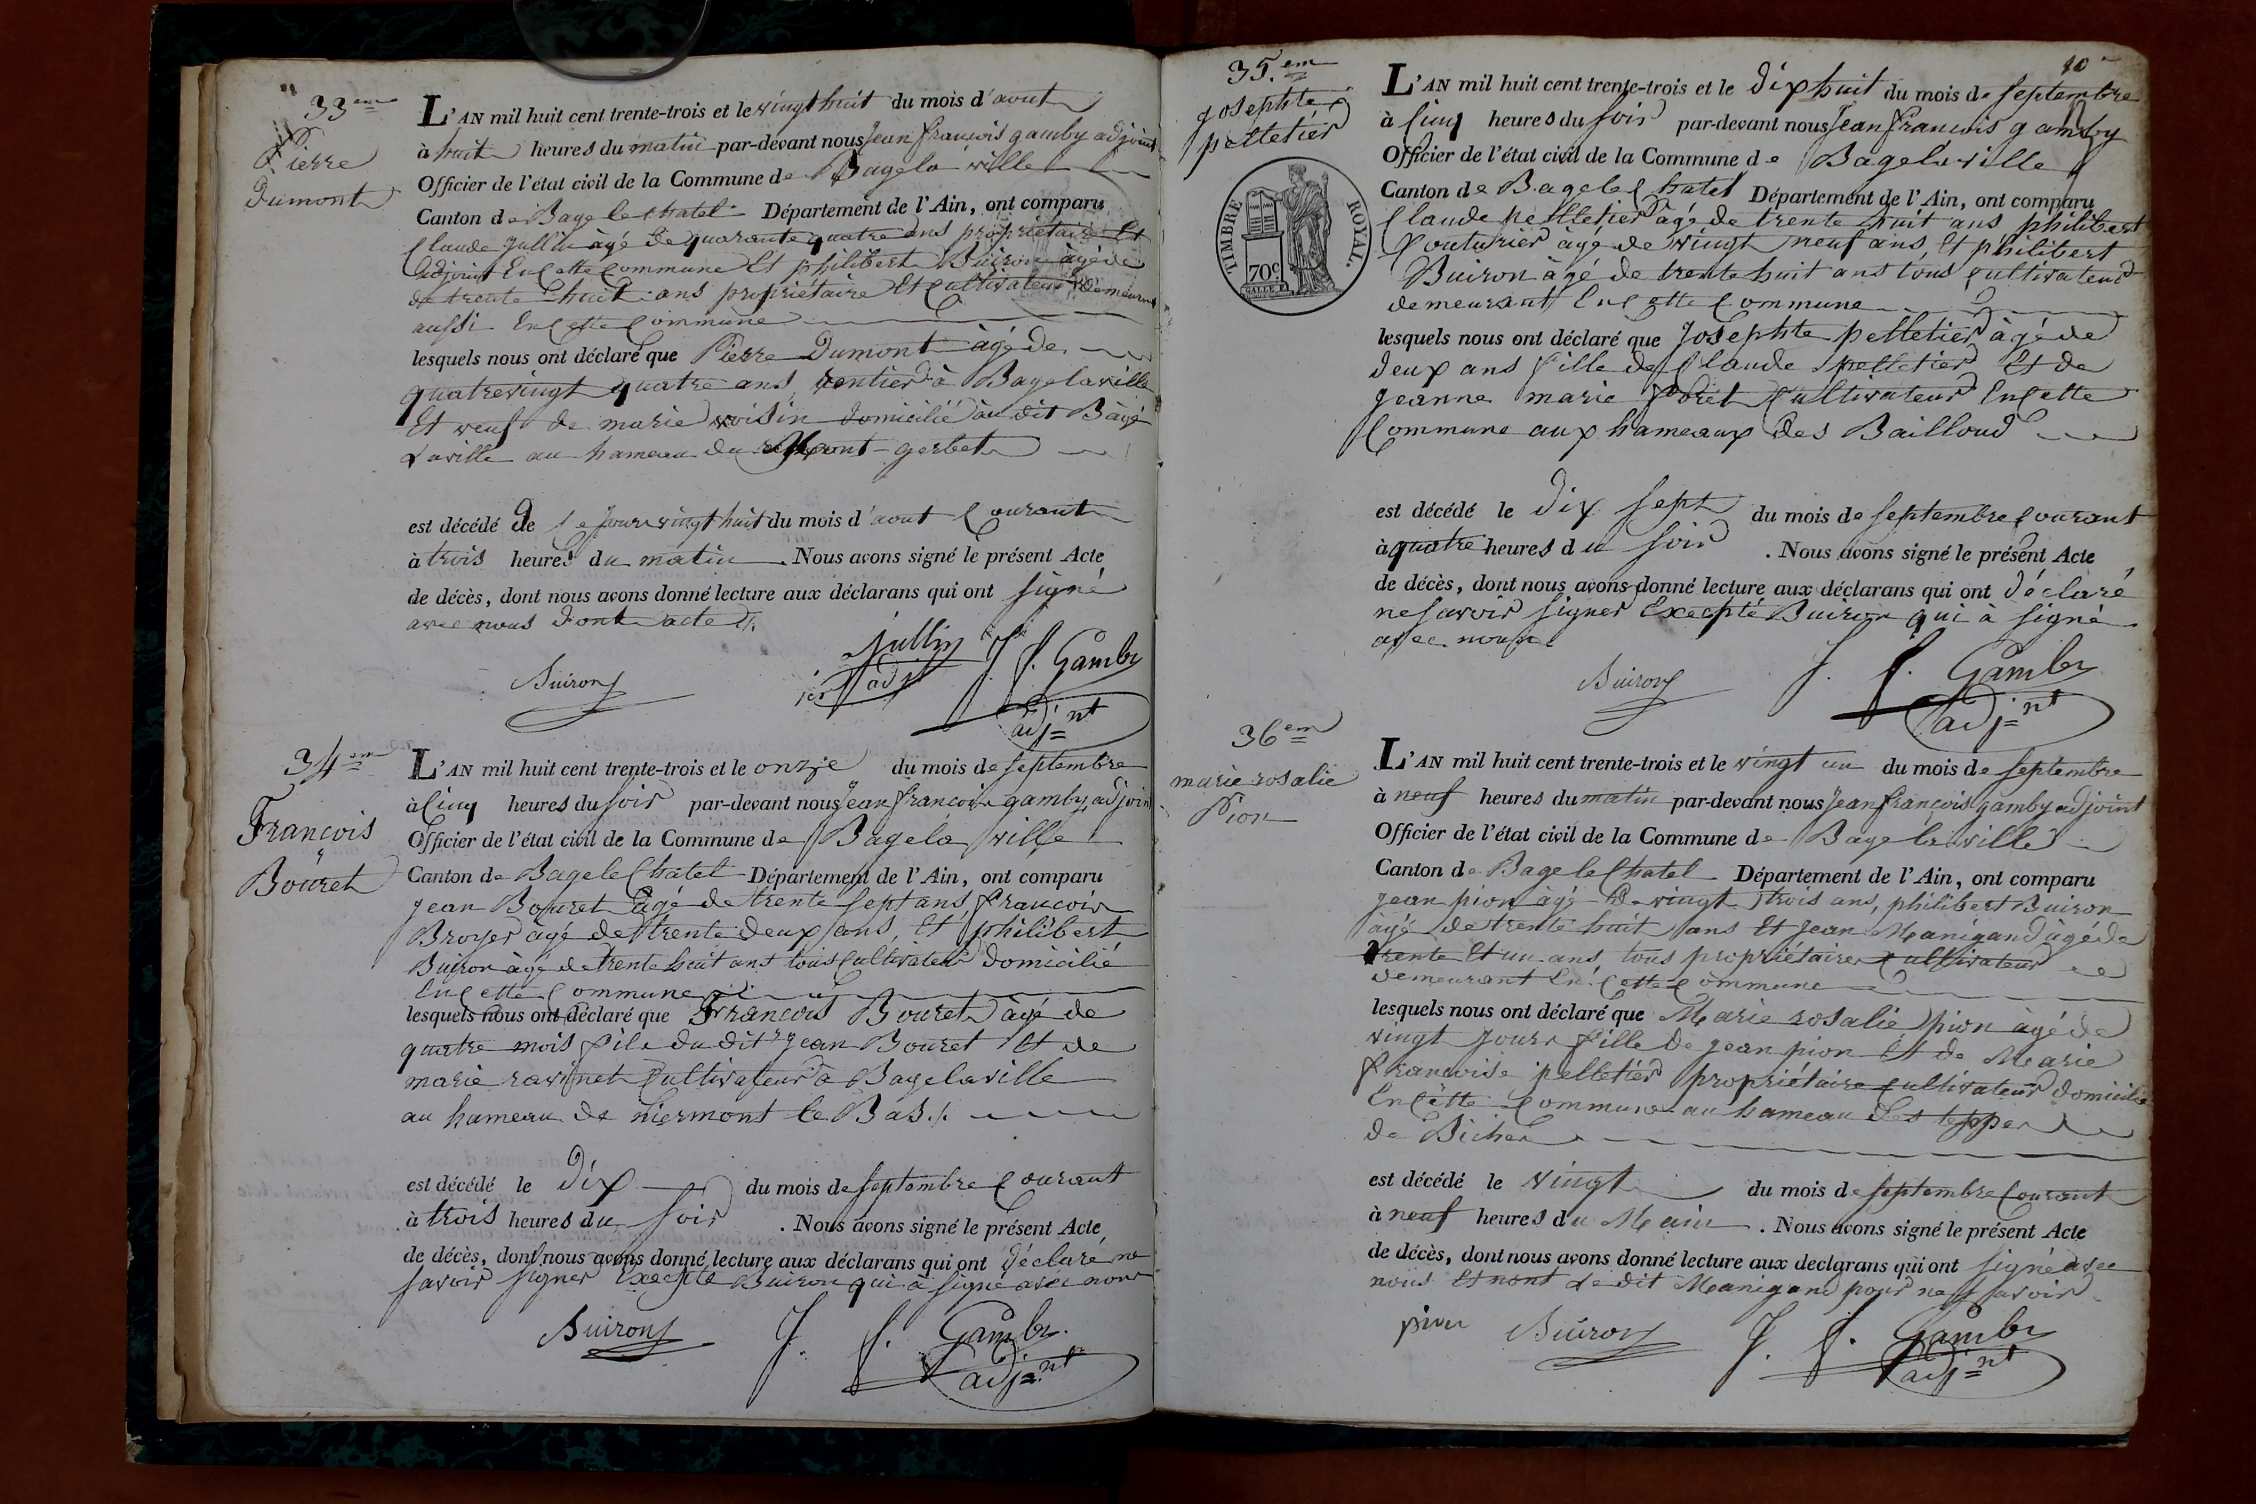 33em
Pierre
Dumont
L'AN mil huit cent trente-trois et le vingt huit du mois d'aout
à huit heures du matin par-devant nous Jean françois gamby adjoint
Officier de l'état civil de la Commune de Bagela ville
Canton de Bage le chatel Département de l'Ain, ont comparu
Claude Jullin àgé de quarante quatre ans propriétaire Et
adjoint En Cette Commune Et philibert Buiron àgé de
de trente huit ans propriétaire Et Cultivateur demeurant
aussi En Cette Commune
lesquels nous ont déclaré que Pierre Dumont àgé de
quatrevingt quatre ans, rentier à Bagelaville
Et veuf de marie voisin domicilié au dit Bàgé
Laville au hameau du mont-gerbet
est décédé le Jour vingt huit du mois d'aout Courant
à trois heures du matin. Nous avons signé le présent Acte
de décès, dont nous avons donné lecture aux déclarans qui ont signé
avec nous Dont acte
Buiron
Jullin
adj
J. f. Gamby
adjnt
34em
François
Bouret
L'AN mil huit cent trente-trois et le onze du mois de septembre
à Cinq heures du soir par-devant nous Jean françois gamby adjoint
Officier de l'état civil de la Commune de Bagela ville
Canton de Bage le Chatel Département de l'Ain, ont comparu
Jean Bouret àgé de trente sept ans, francois
Broyer àgé de trente deux ans, Et philibert
Buiron àgé de trente huit ans tous Cultivateur Domicilié
En Cette Commune
lesquels nous ont déclaré que François Bouret àgé de
quatre mois fils du dit Jean Bouret Et de
marie ravinet Cultivateur à Bagelaville
au hameau de niermont le Bas
est décédé le dix du mois de septembre Courant
à trois heures du soir. Nous avons signé le présent Acte
de décès, dont nous avons donné lecture aux déclarans qui ont Déclaré ne
savoir signer Excepté Buiron qui à signé avec nous
Buiron
J. f. Gamby
adjnt
10
35.em
Josephte
pelletier
TIMBRE ROYAL.
70c
L'AN mil huit cent trente-trois et le Dix huit du mois de septembre
à Cinq heures du soir par-devant nous Jean françois gamby
Officier de l'état civil de la Commune de Bagelaville
Canton de Bagele Chatel Département de l'Ain, ont comparu
Claude pelletier àgé de trente huit ans philibert
Couturier àgé de vingt neuf ans, Et philibert
Buiron àgé de trente huit ans tous Cultivateur
demeurant En Cette Commune
lesquels nous ont déclaré que Josephte pelletier àgé de
Deux ans fille de Claude pelletier Et de
Jeanne marie Cultivateur En Cette
Commune aux hameaux des Bailloud
est décédé le Dix sept du mois de septembre Courant
à quatre heures du soir. Nous avons signé le présent Acte
de décès, dont nous avons donné lecture aux déclarans qui ont Déclaré
ne savoir signer Excepté Buiron qui à signé
avec nous
Buiron
J. f. Gamby
adjnt
36em
marie rosalie
Pion
L'AN mil huit cent trente-trois et le vingt un du mois de septembre
à neuf heures du matin par-devant nous Jean françois gamby adjoint
Officier de l'état civil de la Commune de Bage la ville
Canton de Bage le Chatel Département de l'Ain, ont comparu
Jean pion àgé de vingt trois ans, philibert Buiron
àgé de trente huit ans Et Jean Manigand àgé de
trente Et un ans, tous propriétaires Cultivateur
demeurant En Cette Commune
lesquels nous ont déclaré que Marie rosalie pion àgé de
vingt Jours fille de Jean pion Et de Marie
francoise pelletier propriétaire Cultivateur Domicilié
En Cette Commune au hameau des tepper
de Bicher
est décédé le vingt du mois de septembre Courant
à neuf heures du. Nous avons signé le présent Acte
de décès, dont nous avons donné lecture aux declarans qui ont signé avec
nous Et nont Le dit Manigand pour ne savoir
pion
Buiron
J. f. Gamby
adjnt